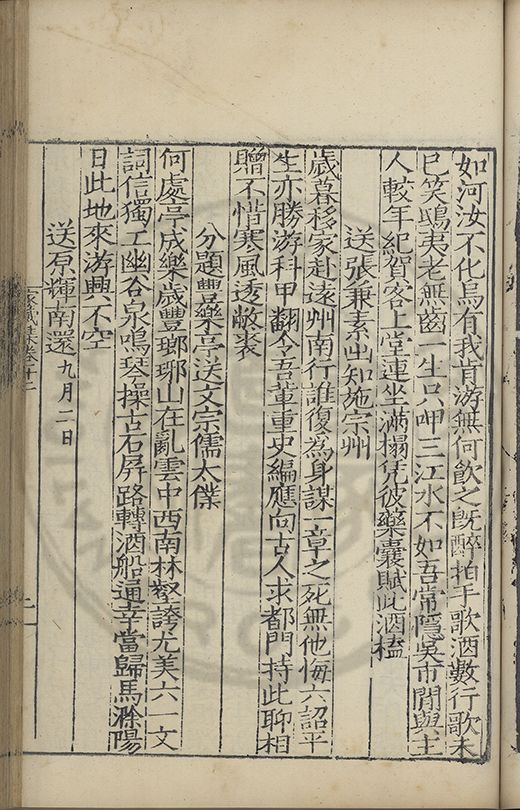 如河汝不化烏有我肯游無何飲之旣醉拍手歌酒數行歌未
已笑鴟夷老無齒一生只呷三江水不如吾常隱吳市閒與主
人較年紀賀客上堂連坐滿榻凭彼藥囊賦此酒榼
送張兼素出知施宗州
歲暮移家赴遠州南行誰復為身謀一章之死無他悔六詔平
生亦勝游科甲翻令吾輩重史編應向古人求都門持此聊相
贈不惜寒風透敝裘
分題豐樂亭送文宗儒太僕
何處亭成樂歲豐瑯琊山在亂雲中西南林壑誇尤美六一文
詞信獨工幽谷泉鳴琴操古石屏路轉酒船通幸當歸馬滁陽
日此地來游興不空
送原輝南還九月二日
家藏集卷十二